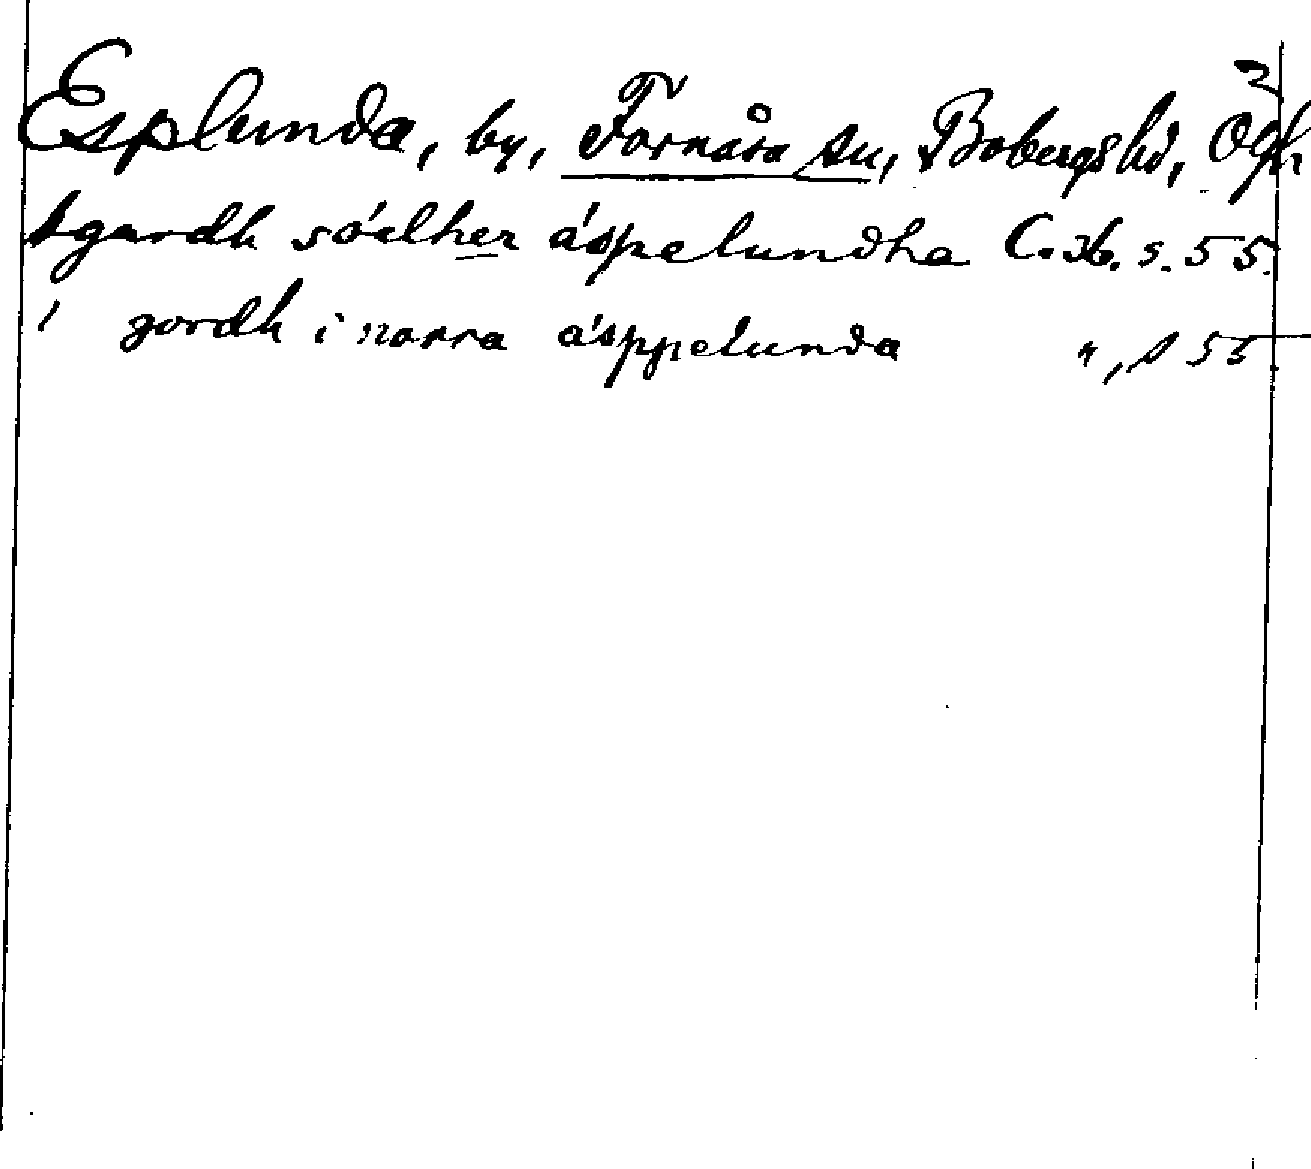 Esplunda, by, Fornåsa sn, Bobergs hd, Ögl.
1 gardh söälher äspelundha C. 36. s. 55.
1 gordh i norra äsppelunda ", s 55